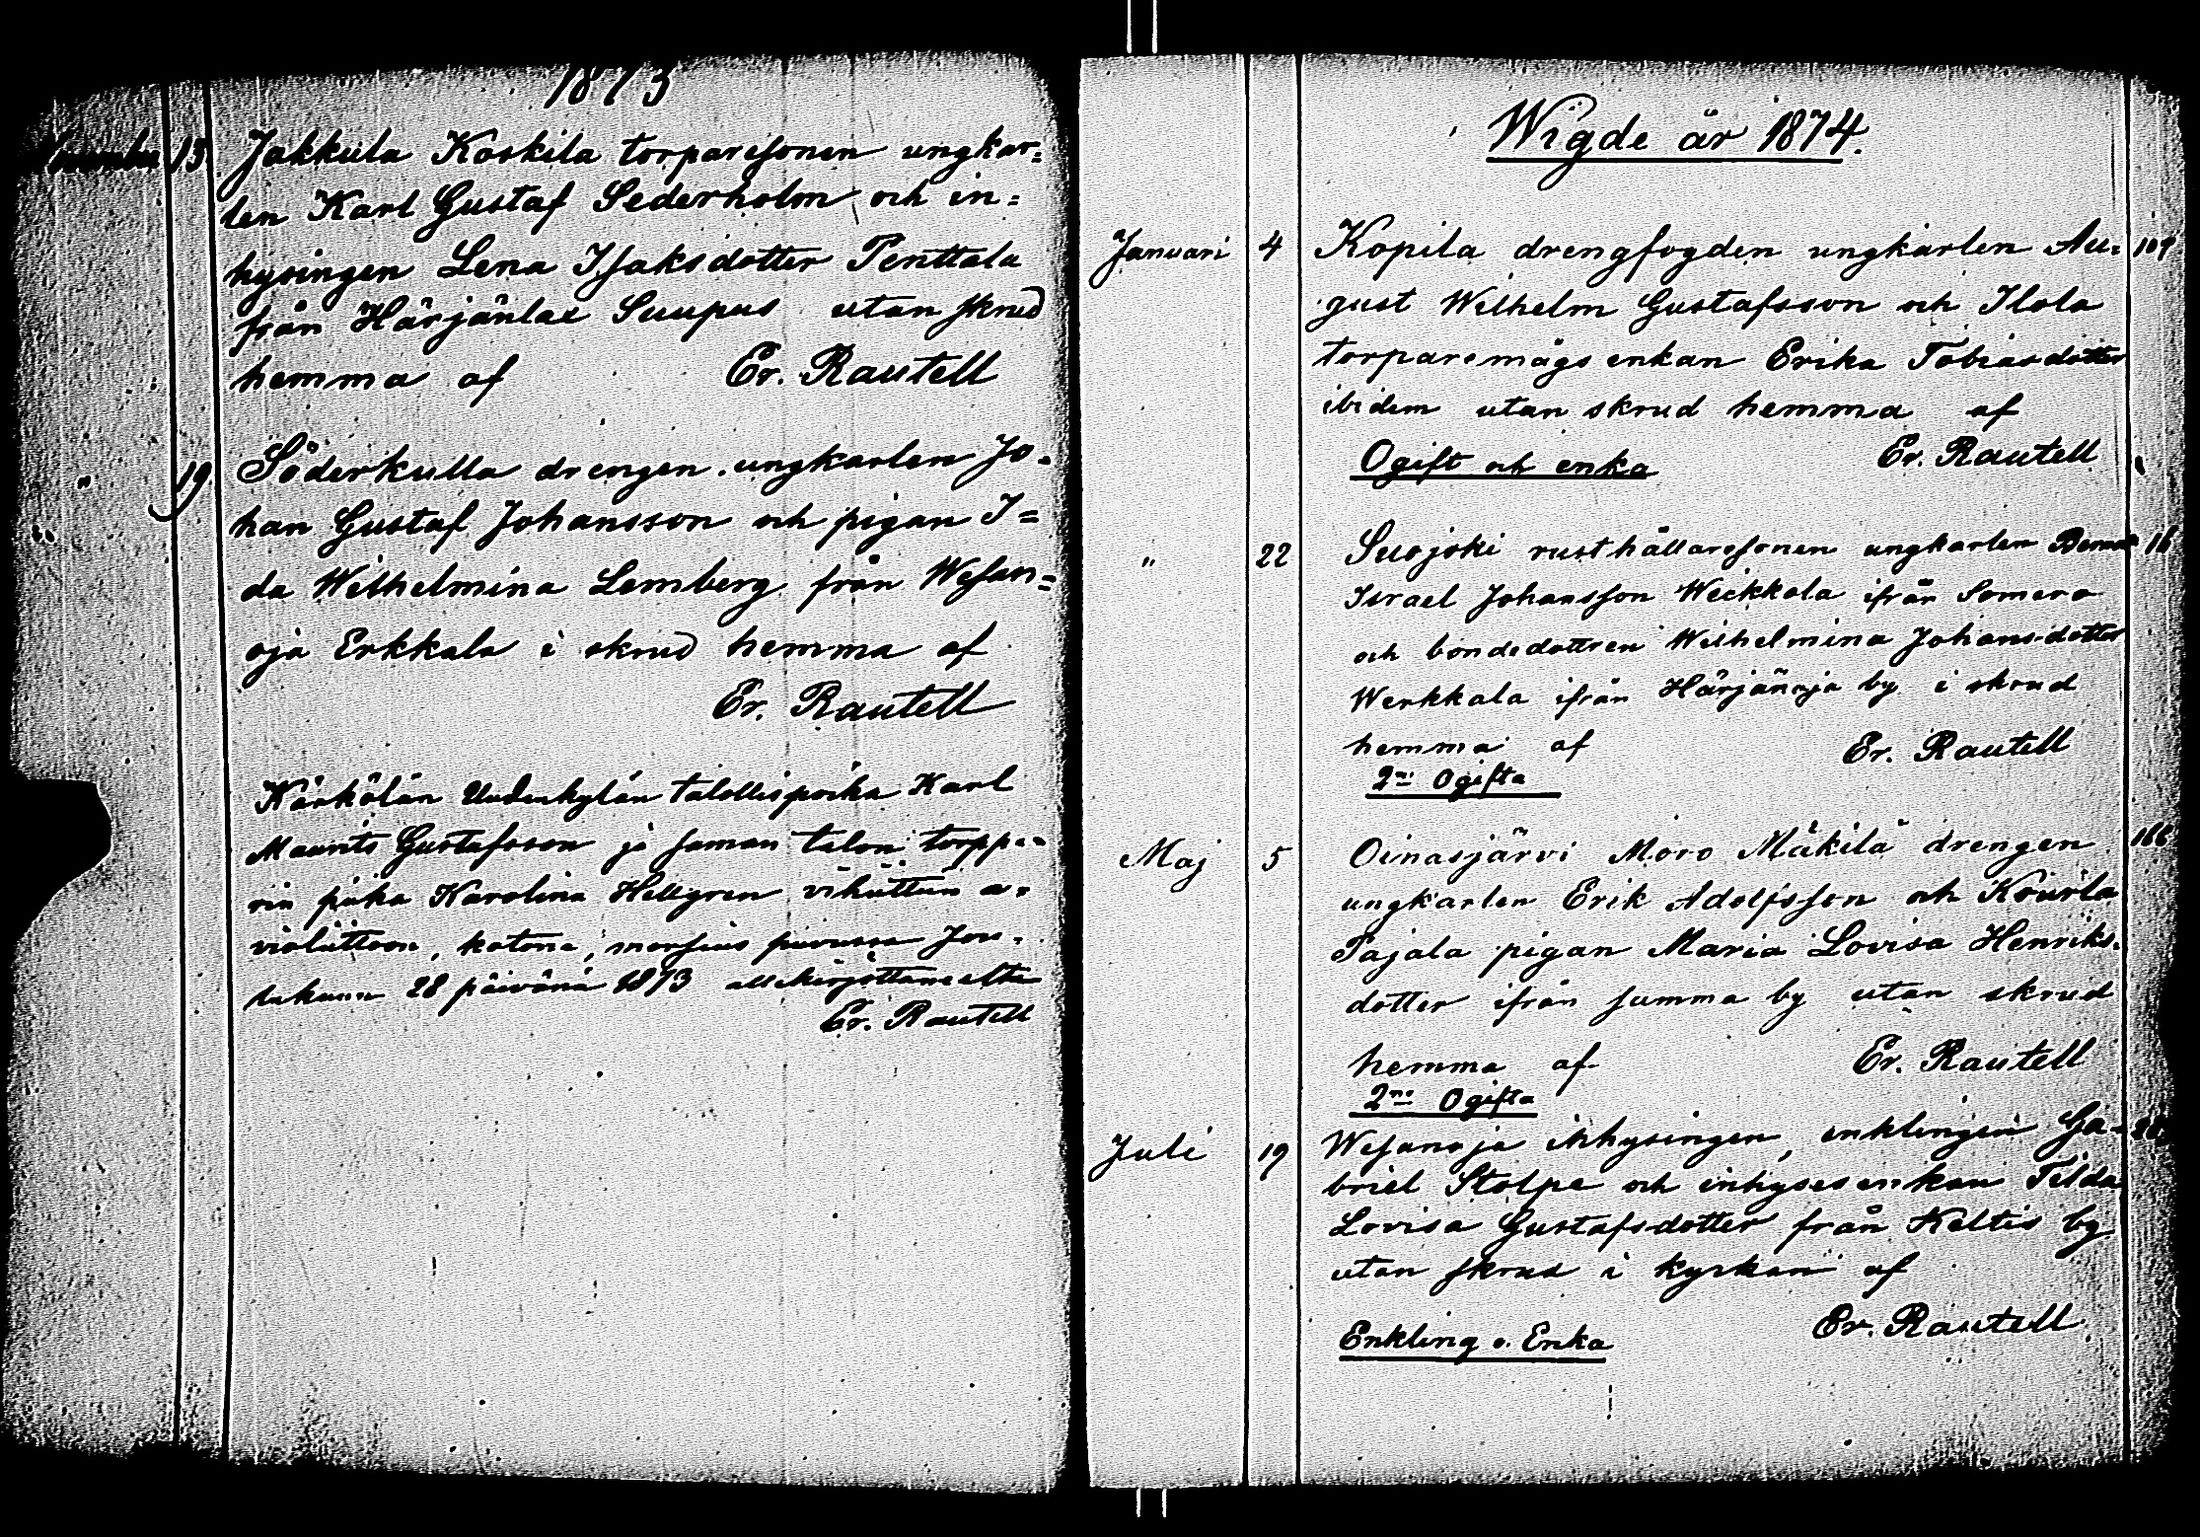 1873
November 13 Jakkula Koskila torparesonen ungkar=
len Karl Gustaf Sederholm och in=
hysingen Lena Isaksdotter Penttala
från Härjänlae Suupus utan skrud
hemma af Er. Rautell
" 19 Söderkulla drengen ungkarlen Jo=
han Gustaf Johansson och pigan I=
da Wilhelmina Lemberg från Wesan=
oja Erkkala i skrud hemma af
Er. Rautell
Kärkölän Uudenkylän talollispoika Karl
Maurits Gustafsson ja saman talon torppa=
rin piika Karolina Hellgren vihittiin a=
violiittoon, kotona, morsius puvussa Jou=
lukuun 28 päivänä 1873 allekirjoittaneelta
Er. Rautell
Wigde år 1874.
Januari 4 Kopila drengfogden ungkarlen Au= 109
gust Wilhelm Gustafsson och Ilola
torparemågs enkan Erika Tobiasdotter
ibidem utan skrud hemma af
Ogift och enka Er. Rautell
" 22 Suojoki rusthållaresonen ungkarlen 16
Israel Johansson Weikkola ifrån Somero
och bondedottren Wilhelmina Johansdotter
Werkkala ifrån Härjänoja by i skrud
hemma af Er. Rautell
2ne Ogifta
Maj 5 Oinasjärvi Moro Mäkilä drengen 166
ungkarlen Erik Adolfsson och Kourla
Pajala pigan Maria Lovisa Henriks=
dotter ifrån samma by utan skrud
hemma af Er. Rautell
2ne Ogifta
Juli 19 Wesanoja inhysingen, enklingen Ga=
briel Stolpe och inhysesenkan Tilda
Lovisa Gustafsdotter från Keltis by
utan skrud i kyrkan af
Enkling o. Enka Er. Rautell